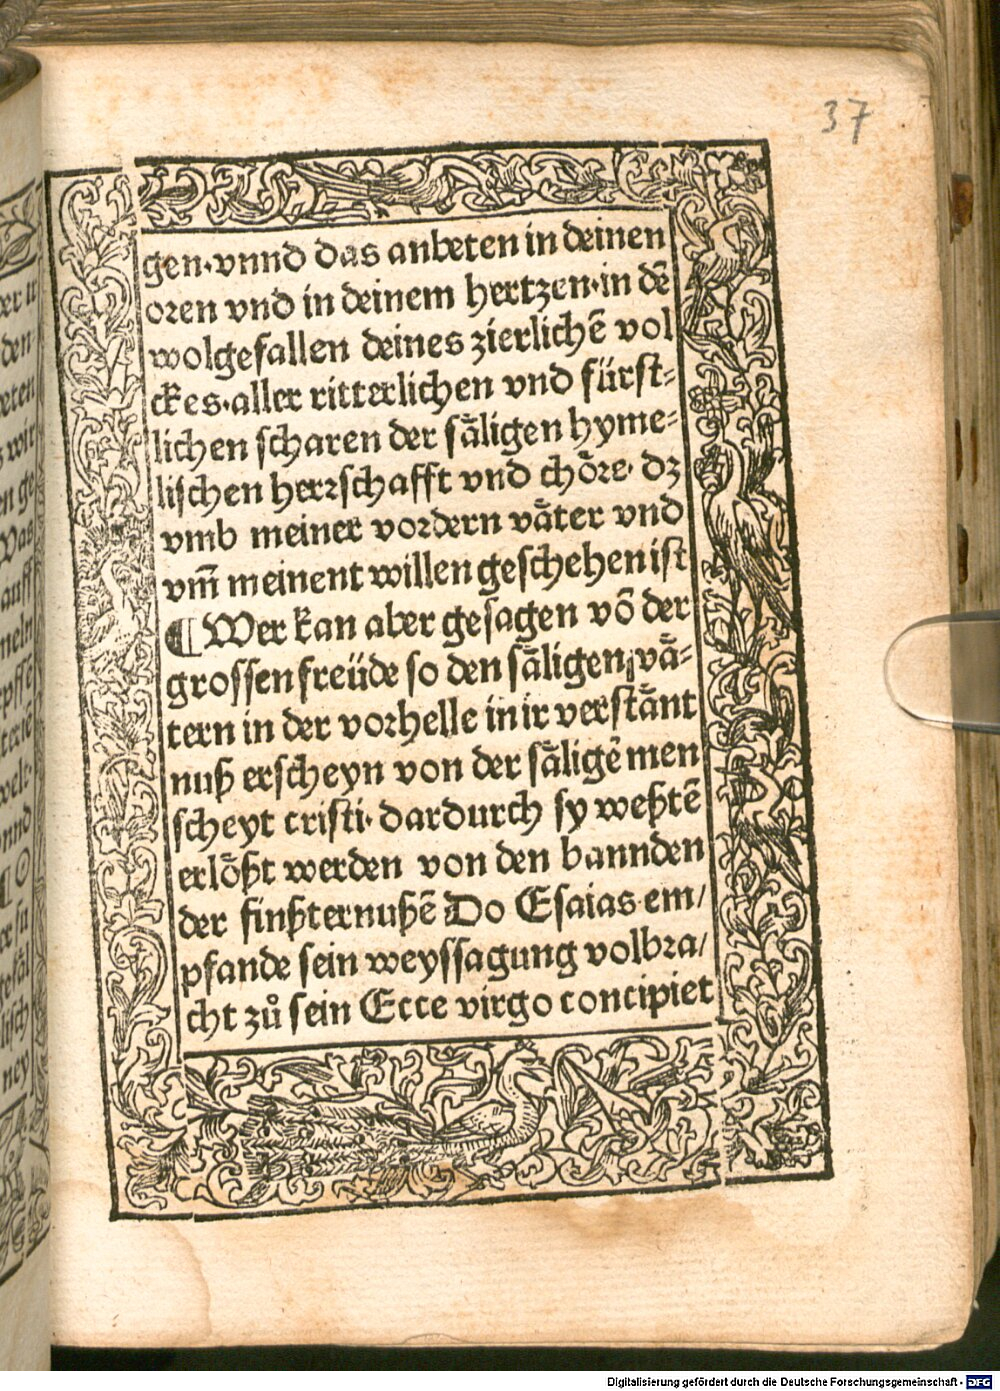 37
gen·vnnd das anbeten in deinen
oren vnd in deinem hertzen·in dē
wolgefallen deines zierlichē vol
ckes·aller ritterlichen vnd fürst⸗
lichen scharen der sa̋ligen hyme⸗
lischen herrschafft vnd chőre· dz
vmb meiner vordern va̋ter vnd
vm̄ meinent willen geschehen ist
¶ Wer kan aber gesagen vō der
grossen freüde so den sa̋ligen va̋⸗
tern in der vorhelle in ir versta̋nt
nuß erscheyn von der sa̋ligē men
scheyt cristi· dardurch sy weßtē
erlőßt werden von den bannden
der finßternußē Do Esaias em/
pfande sein weyssagung volbra/
cht zů sein Ecce virgo concipiet
Digitalisierung gefördert durch die Deutsche Forschungsgemeinschaft - DFG